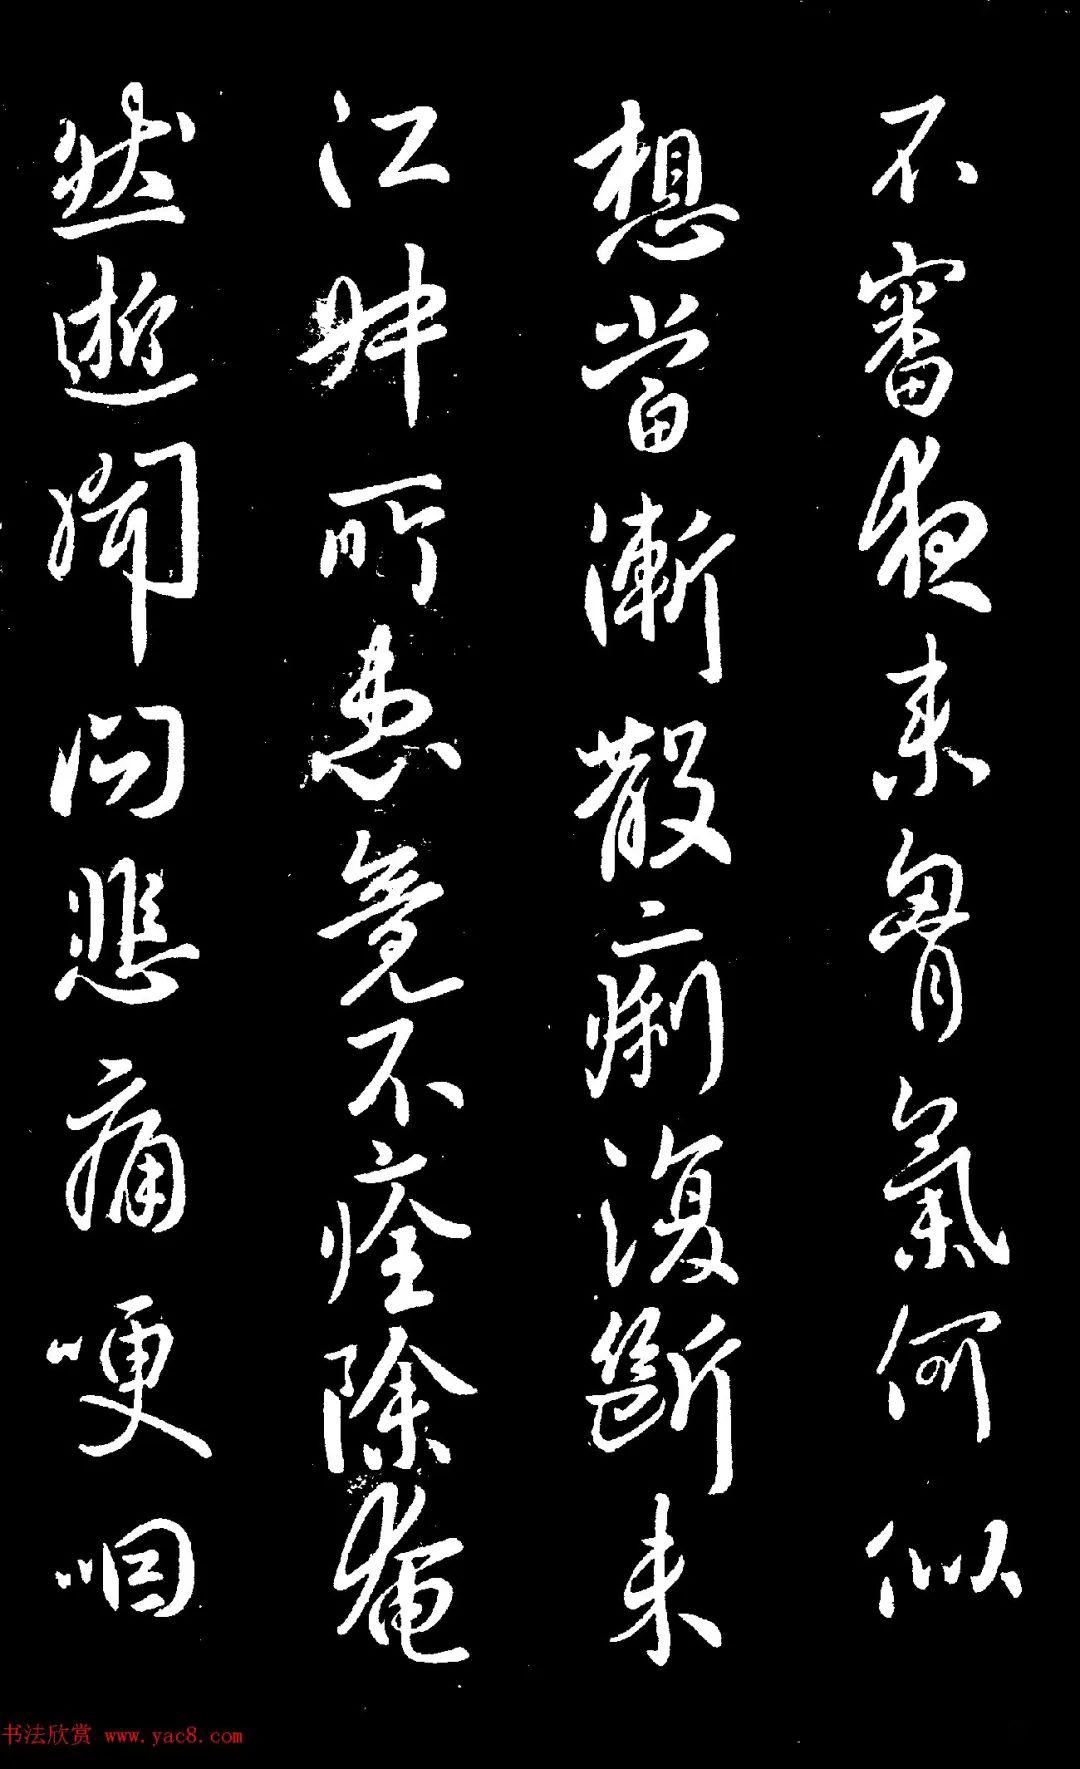 不審夜來胷氣何似
想當漸散痢復斷未
江姉所患竟不痊除奄
然逝聞問悲痛哽咽
书法欣赏 www.yac8.com